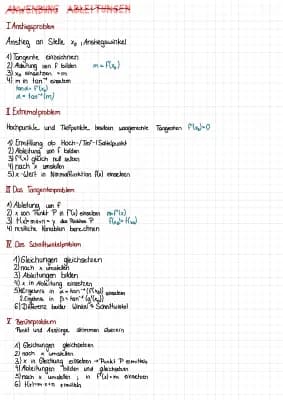 ANWENDUNG ABLEITUNGEN
I Anstiegsproblem
Anstieg an Stelle x₀, Anstiegswinkel
1) Tangente einzeichnen
2) Ableitung von f bilden m = f'(x₀)
3) x₀ einsetzen → m
4) m in tan⁻¹ einsetzen
tan α = f'(x₀)
α = tan⁻¹(m)
II Extremalproblem
Hochpunkte und Tiefpunkte besitzen waagerechte Tangenten f'(x₀)=0
1) Ermittlung ob Hoch-/Tief-/Sattelpunkt
2) Ableitung von f bilden
3) f'(x) gleich null setzen
4) nach x umstellen
5) x-Wert in Normalfunktion f(x) einsetzen
III Das Tangentenproblem
1) Ableitung von f
2) x von Punkt P in f'(x) einsetzen m=f'(x)
3) = y des Punktes P
4) restliche Variablen berechnen
IV Das Schnittwinkelproblem
1) Gleichungen gleichsetzen
2) nach x umstellen
3) Ableitungen bilden
4) x in Ableitung einsetzen
5) 1. Ergebnis in α = tan⁻¹(f'(x₀)) einsetzen
2. Ergebnis in β = tan⁻¹(g'(x₀))
6) Differenz beider Winkel = Schnittwinkel
V Berührproblem
Punkt und Anstiege stimmen überein
1) Gleichungen gleichsetzen
2) nach x umstellen
3) x in Gleichung einsetzen → Punkt P ermitteln
4) Ableitungen bilden und gleichsetzen
5) nach x umstellen ; in f'(x)=m einsetzen
6) t(x)=m·x+n ermitteln